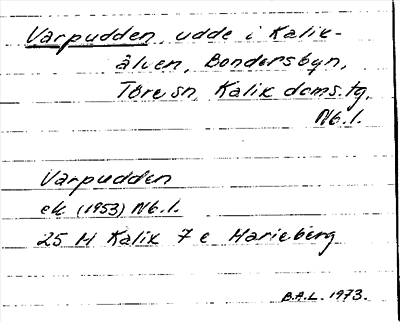 Varpudden, udde i Kalix-
älven, Bondersbyn,
Töre sn, Kalix doms.tg,
Nb.l.
Varpudden
ek (1953) Nb.l.
25 M Kalix 7 e Marieberg
B.A.L. 1973.